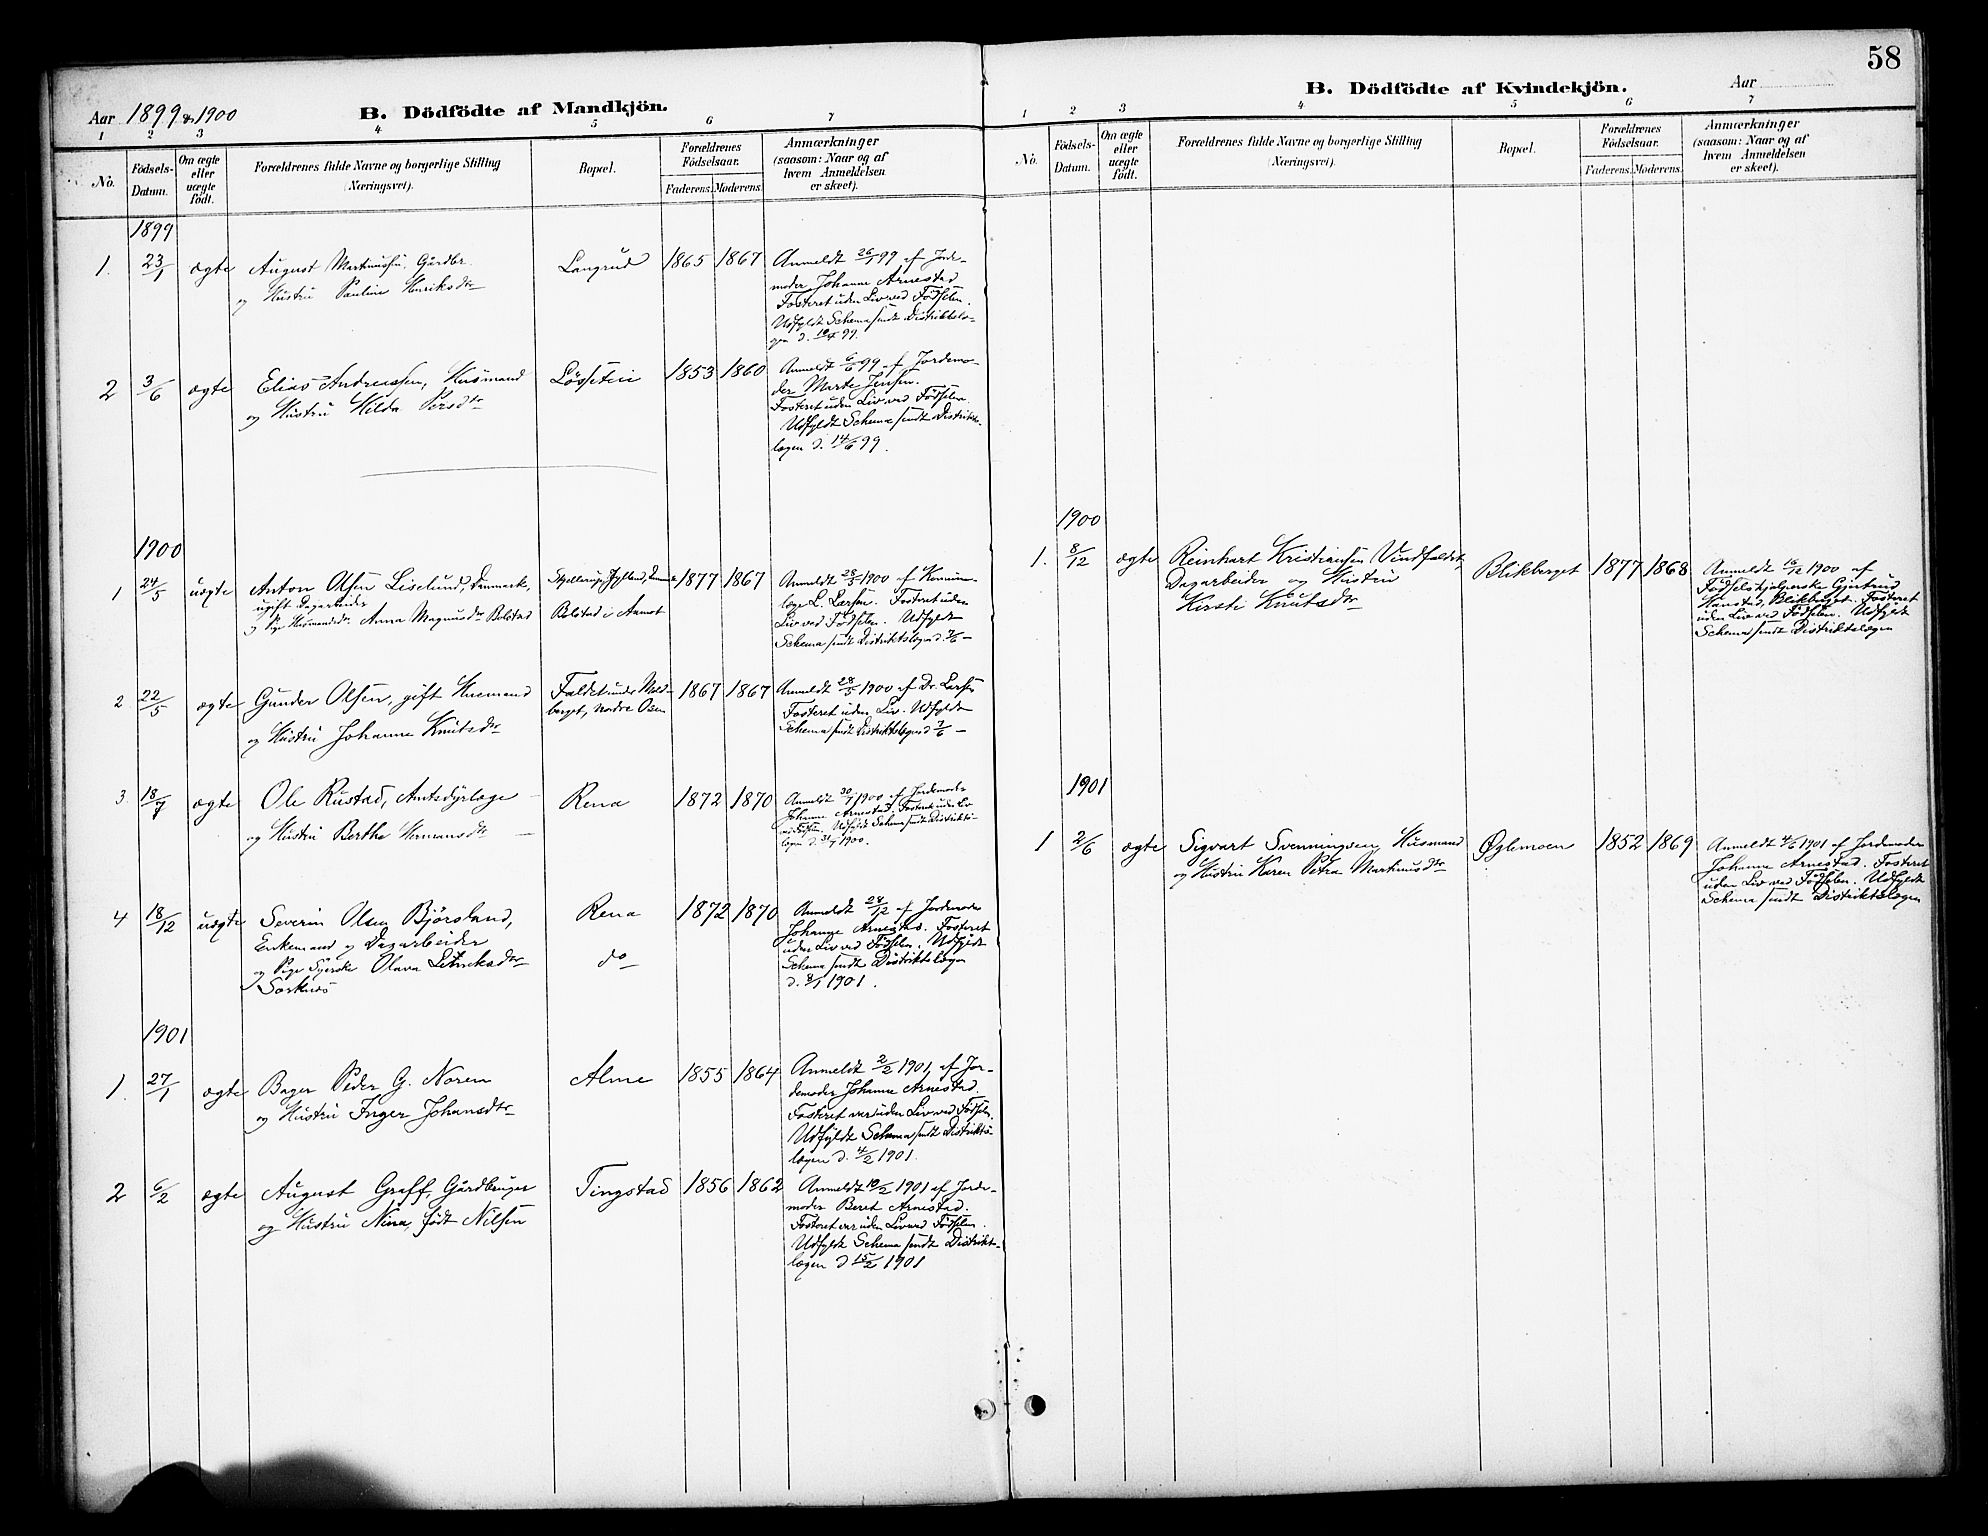 58
Aar 1899 & 1900
B. Dödfödte af Mandkjön.
1 2 3 4 5 6 7
No.
Födsels-Datum.
Om ægte eller uægte födt.
Forældrenes fulde Navne og borgerlige Stilling
(Næringsvei).
Bopæl.
Forældrenes Födselsaar.
Faderens. Moderens.
Anmærkninger
(saasom: Naar og af
hvem Anmeldelsen
er skeet).
1899
1. 23/1 ægte August Martinussen, Gårdbr. Langrud 1865 1867
og Hustru Pauline Henriksdtr
Anmeldt 26/1 99 af Jorde-
moder Johanne Arnestad
Fosteret uden Liv ved Födselen.
Udfyldt Schema sendt Distriktslæ-
gen d. 99.
2 3/6 ægte Elias Andreassen, Husmand Løsseteie 1853 1860
og Hustru Hilda Persdtr
Anmeldt 6/6 99 af Jordemo-
der Marte Jensen.
Fosteret uden Liv ved Födselen.
Udfyldt Schema sendt Distrikts-
lægen d. 14/6 99.
1900
1 24/5 uægte Anton Olsen Liselund, Danmark, 1877 1867
ugift Dagarbeider
og Pige Husmandsdr. Anna Magnusdtr Bolstad
Jylland,
Bolstad i Aamot
Anmeldt 28/5 1900 af Kommu-
læge L. Larsen. Fosteret uden
Liv ved Födselen. Udfyldt
Schema sendt Distriktslægen d. 7/6 —
2 22/5 ægte Gunder Olsen, gift Husmand 1867 1867
og Hustru Johanne Knutsdtr
Faldet under Meld-
berget, Nordre Osen
Anmeldt 28/5 1900 af Dr. Larsen
Fosteret uden Liv. Udfyldt
Schema sendt Distriktslægen d 7/6 —
3. 18/7 ægte Ole Rustad, Amtsdyrlæge — Rena 1872 1870
og Hustru Berthe Hermansdtr —
Anmeldt 30/7 1900 af Jordemoder
Johanne Arnestad. Fosteret uden Liv
ved Födselen. Udfyldt Schema sendt Distrikts-
lægen d. 31/7 1900.
4 18/12 uægte Severin Olsen Bjørsland, Rena 1872 1870
Enkemand og Dagarbeider
og Pige Syerske Olava do
Sorknes
Anmeldt 28/12 af Jordemoder
Johanne Arnestad. Fosteret
uden Liv ved Födselen. Udfyldt
Schema sendt Distriktslægen
d. 2/1 1901.
1901
1. 27/1 ægte Bager Peder G. Noren Alme 1855 1864
og Hustru Inger Johansdtr
Anmeldt 2/2 1901, af Jor-
demoder Johanne Arnestad.
Fosteret var uden Liv ved Födselen.
Udfyldt Schema sendt Distrikts-
lægen d. 4/2 1901.
2 6/2 ægte August Graff, Gårdbruger Tingstad 1856 1862
og Hustru Nina, født Nilsen
Anmeldt 10/2 1901 af Jorde-
moder Beret Arnestad.
Fosteret var uden Liv ved Födselen.
Udfyldt Schema sendt Distrikts-
lægen d 15/2 1901
B. Dödfödte af Kvindekjön.
Aar
1 2 3 4 5 6 7
No.
Födsels-Datum.
Om ægte eller uægte födt.
Forældrenes fulde Navne og borgerlige Stilling
(Næringsvei).
Bopæl.
Forældrenes Födselsaar.
Faderens. Moderens.
Anmærkninger
(saasom: Naar og af
hvem Anmeldelsen
er skeet).
1900
1. 8/12 ægte Reinhart Kristiansen Vindfaldet, Blikberget 1877 1868
Dagarbeider og Hustru
Kirsti Knutsdtr
Anmeldt 16/12 1900 af
Födselshjelperske Gjertrud
Hanstad, Blikberget. Fosteret
uden Liv ved Födselen. Udfyldt
Schema sendt Distriktslægen
1901
1 2/6 ægte Sigvart Svenningsen, Husmand Øglemoen 1852 1869
og Hustru Karen Petra Martinusdtr
Anmeldt 4/6 1901 af Jordemoder
Johanne Arnestad. Fosteret
uden Liv ved Födselen. Udfyldt
Schema sendt Distriktslægen